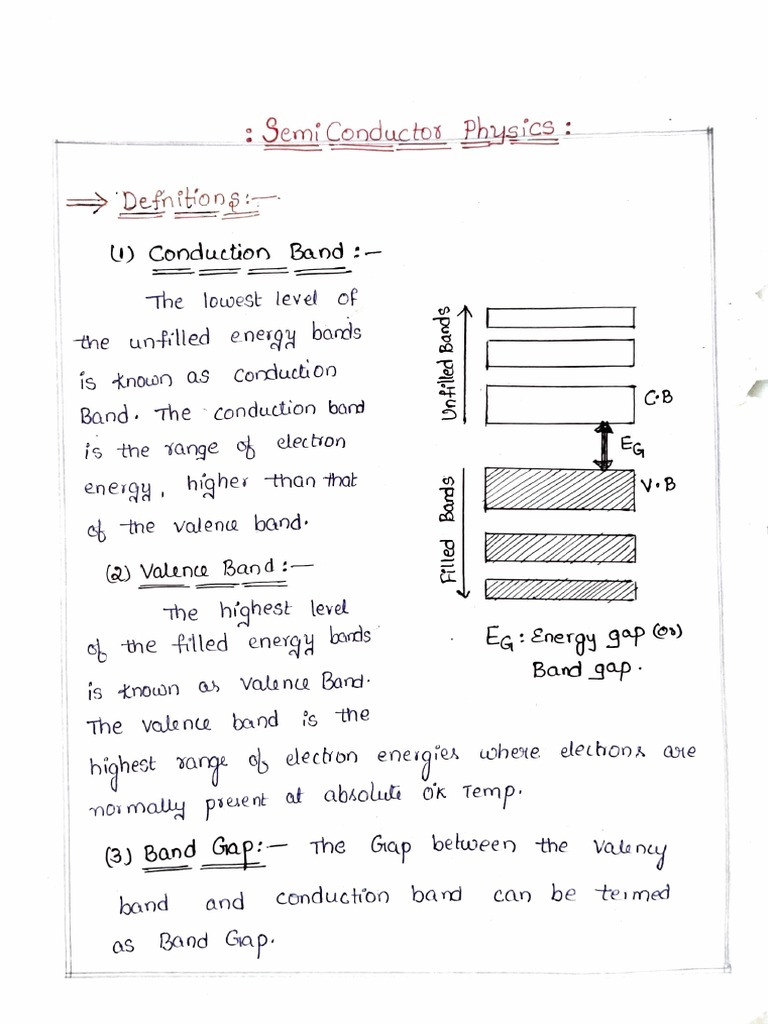 : Semi Conductor Physics :
⇒ Defnitions :-
(1) Conduction Band :-
The lowest level of
the unfilled energy bands
is known as conduction
Band. The conduction band
is the range of electron
energy, higher than that
of the valence band.
(2) Valence Band :-
The highest level
of the filled energy bands
is known as valence Band.
The valence band is the
highest range of electron energies where electrons are
normally present at absolute 0°K Temp.
(3) Band Gap :- The Gap between the valency
band and conduction band can be termed
as Band Gap.
Unfilled Bands
C.B
EG
V.B
Filled Bands
EG : Energy gap (or)
Band gap.